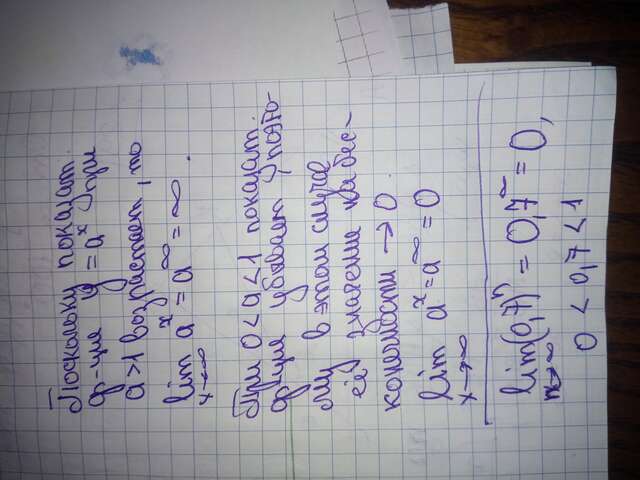 Поскольку показат.
ф-ция y = a^x при
a>1 возрастает, то
lim a^x = a^∞ = ∞.
x→∞
При 0<a<1 показат.
ф-ция убывает, поэто-
му в этом случае
её значение на бес-
конечности → 0.
lim a^x = a^∞ = 0
x→∞
lim(0,7)^n = 0,7^∞ = 0,
n→∞
0 < 0,7 < 1